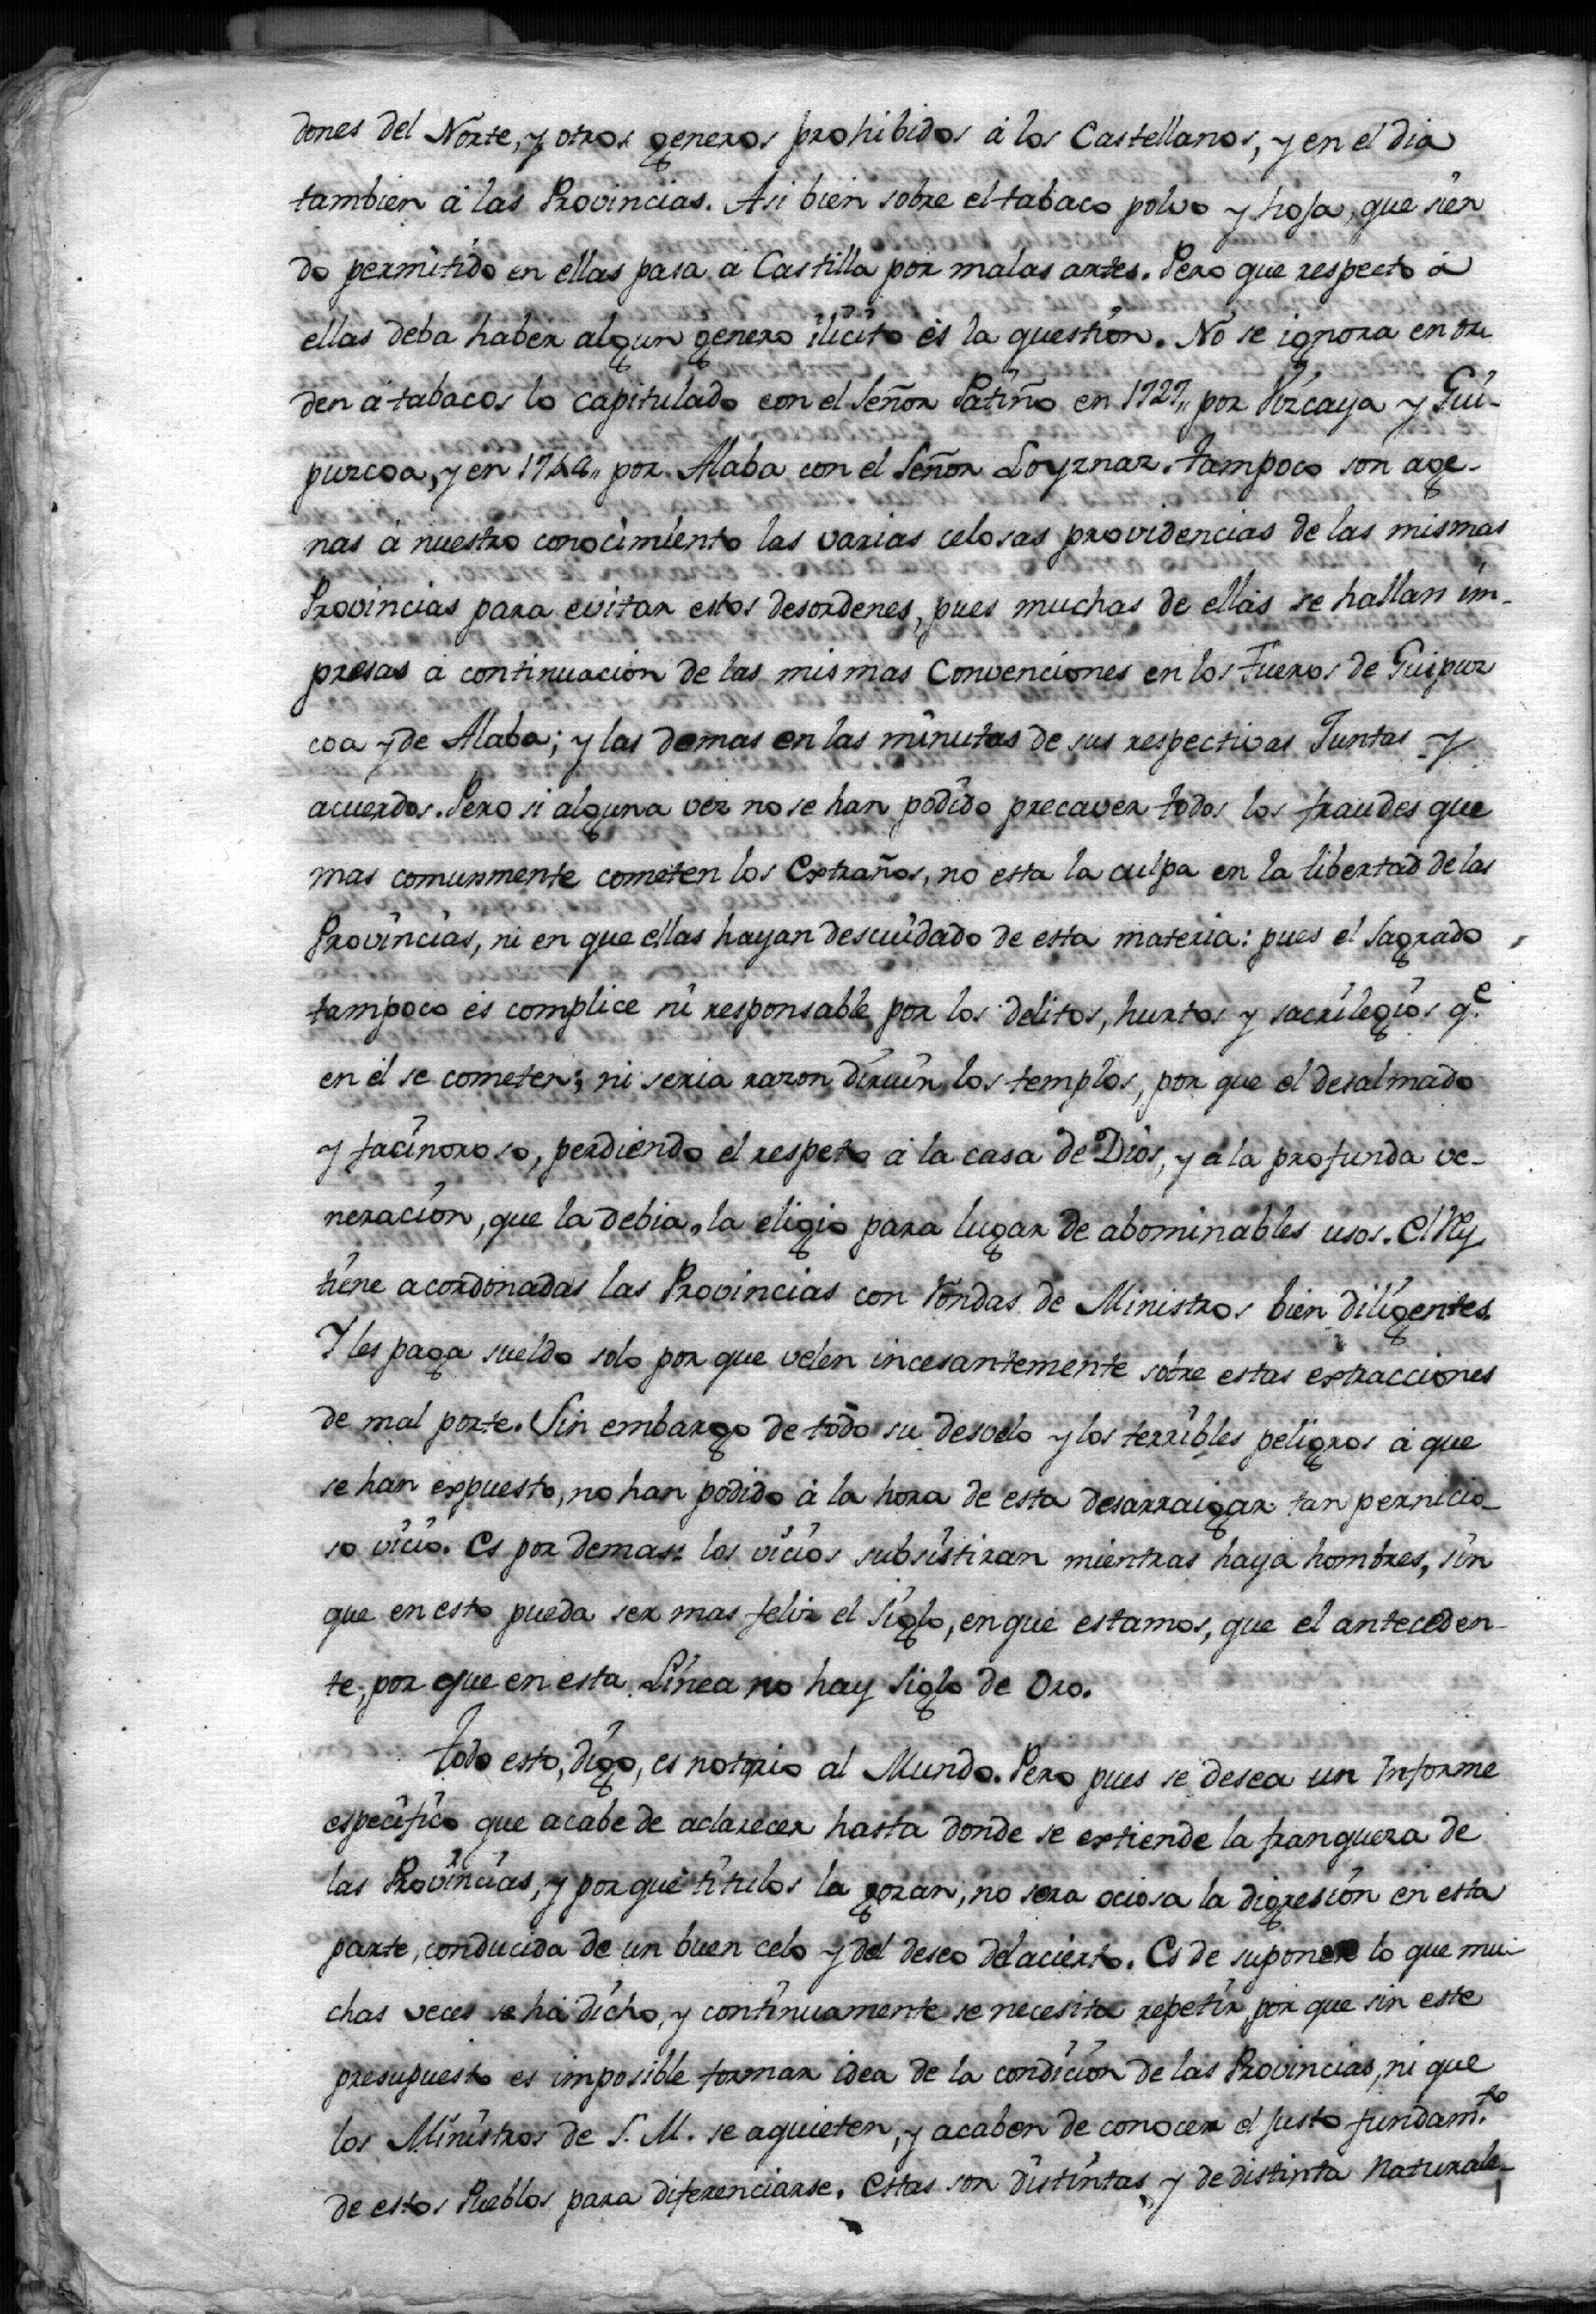 dones del Norte, y otros generos prohibidos á los Castellanos, y en el dia
tambien á las Provincias. Asi bien sobre el tabaco polvo y hoja, que sien
do permitido en ellas pasa á Castilla por malas artes. Pero que respecto á
ellas deba haber algun genero ilicito és la question. No se ignora en or
den á tabacos lo capitulado con el Señor Patiño en 1727,, por Vizcaya y Gui-
puzcoa, y en 17 por Alaba con el Señor Loynaz. Tampoco son age-
nas á nuestro conocimiento las varias celosas providencias de las mismas
Provincias para evitar estos desordenes, pues muchas de ellas se hallan im-
presas á continuacion de las mismas Convenciones en los Fueros de Guipuz
coa y de Alaba; y las demas en las minutas de sus respectivas Juntas y
acuerdos. Pero si alguna vez no se han podido precaver todos los fraudes que
mas comunmente cometen los Extraños, no esta la culpa en la libertad de las
Provincias, ni en que ellas hayan descuidado de esta materia: pues el Sagrado
tampoco és complice ni responsable por los delitos, hurtos y sacrilegios q.e
en él se cometen; ni seria razon diruir los templos, por que el desalmado
y facinoroso, perdiendo el respeto á la casa de Dios, y á la profunda ve-
neracion, que la debia, la eligio para lugar de abominables usos. El Rey
tiene acordonadas las Provincias con Rondas de Ministros bien diligentes.
Y les paga sueldo solo por que velen incesantemente sobre estas extracciones
de mal porte. Sin embargo de todo su desvelo y los terribles peligros á que
se han expuesto, no han podido á la hora de esta desarraigar tan pernicio-
so vicio. Es por demas: los vicios subsistiran mientras haya hombres, sin
que en esto pueda ser mas feliz el Siglo, en que estamos, que el anteceden-
te, por que en esta Linea no hay Siglo de Oro.
Todo esto, digo, es notorio al Mundo. Pero pues se desea un Informe
especifico que acabe de aclarecer hasta donde se extiende la franqueza de
las Provincias, y por qué titulos la gozan, no sera ociosa la digresion en esta
parte, conducida de un buen celo y del deseo del acierto. Es de suponer lo que mu-
chas veces se há dicho, y continuamente se necesita repetir, por que sin este
presupuesto es imposible formar idea de la condicion de las Provincias, ni que
los Ministros de S. M. se aquieten, y acaben de conocer el justo fundam.to
de estos Pueblos para diferenciarse. Estas son distintas, y de distinta Naturale-